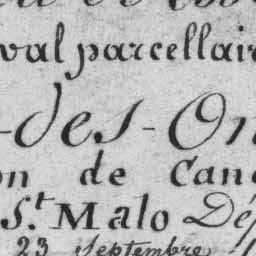 val parcellair
-des-On
on de Can
St. Malo Dé
23 Septembre